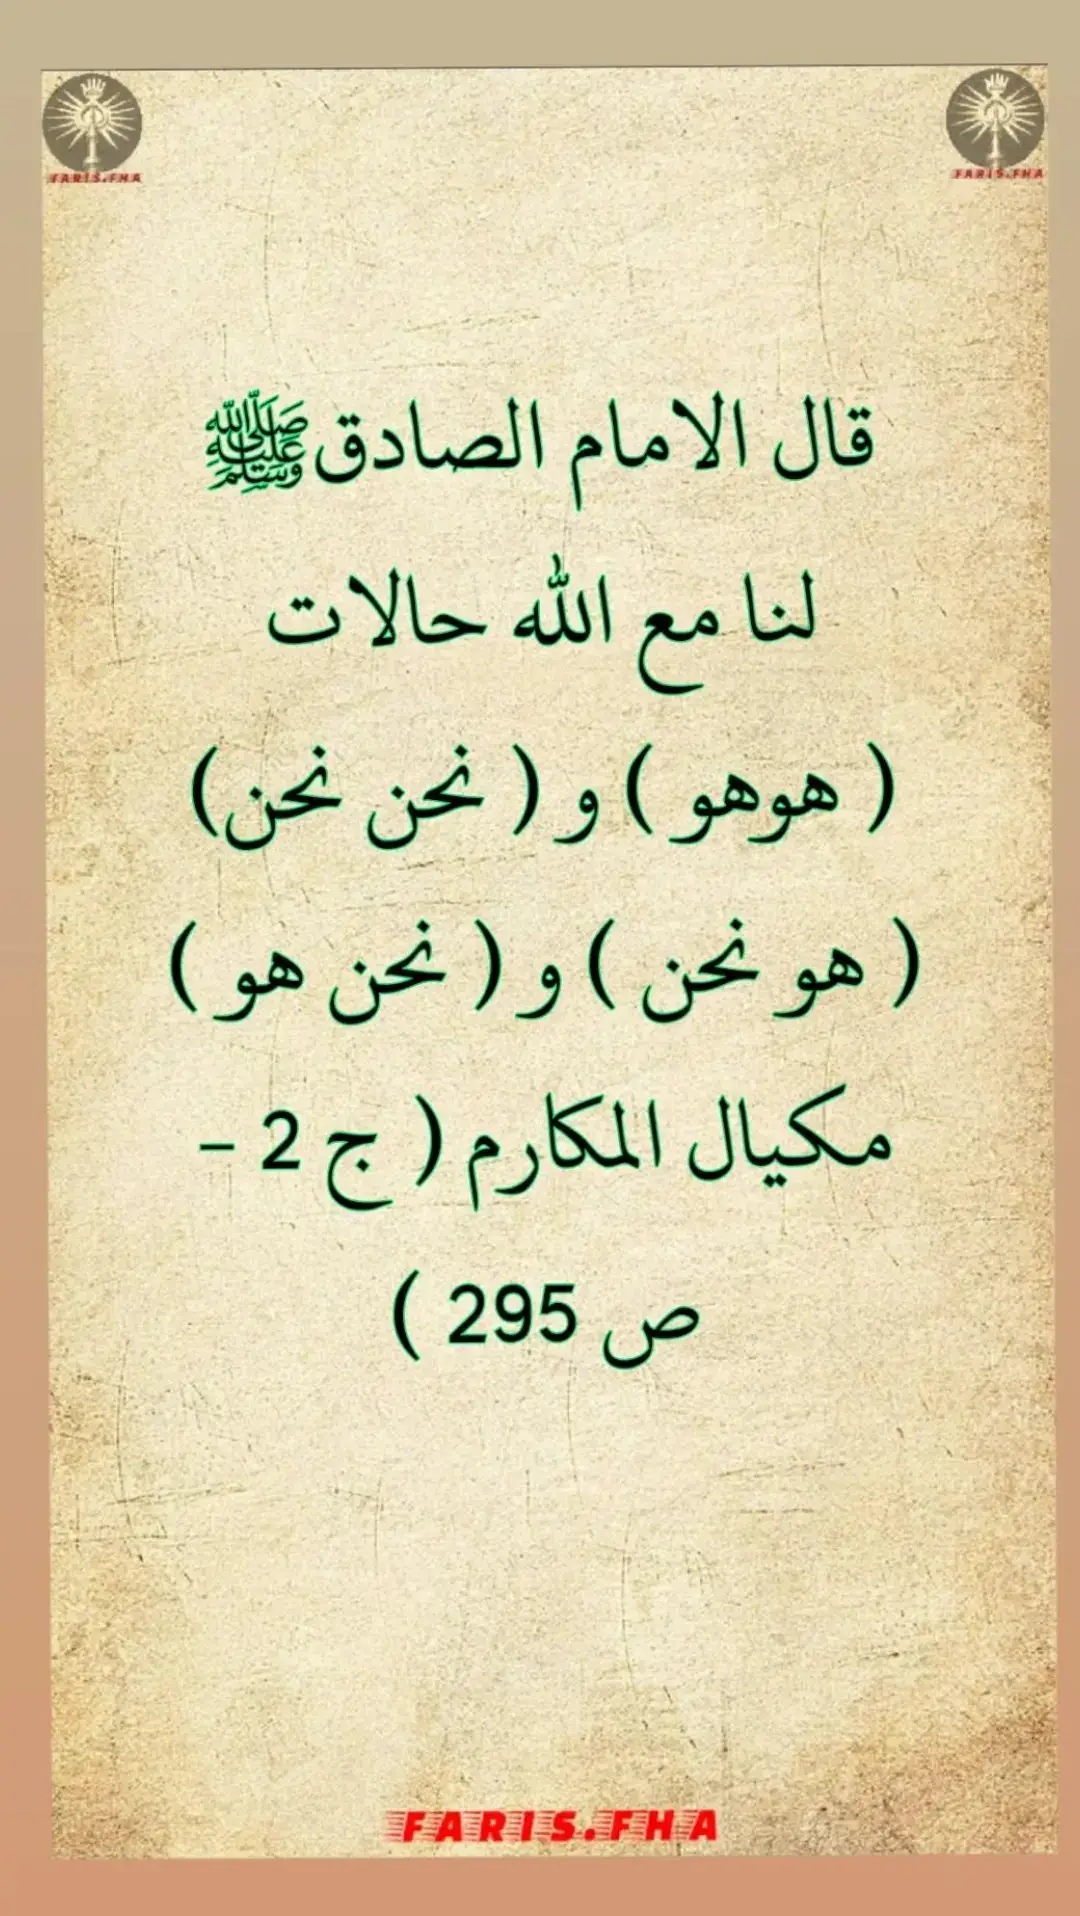 FARIS.FHA
FARIS.FHA
قال الامام الصادق ﷺ
لنا مع الله حالات
( هوهو ) و ( نحن نحن)
( هو نحن ) و ( نحن هو )
مكيال المكارم ( ج 2 -
ص 295 )
FARIS.FHA